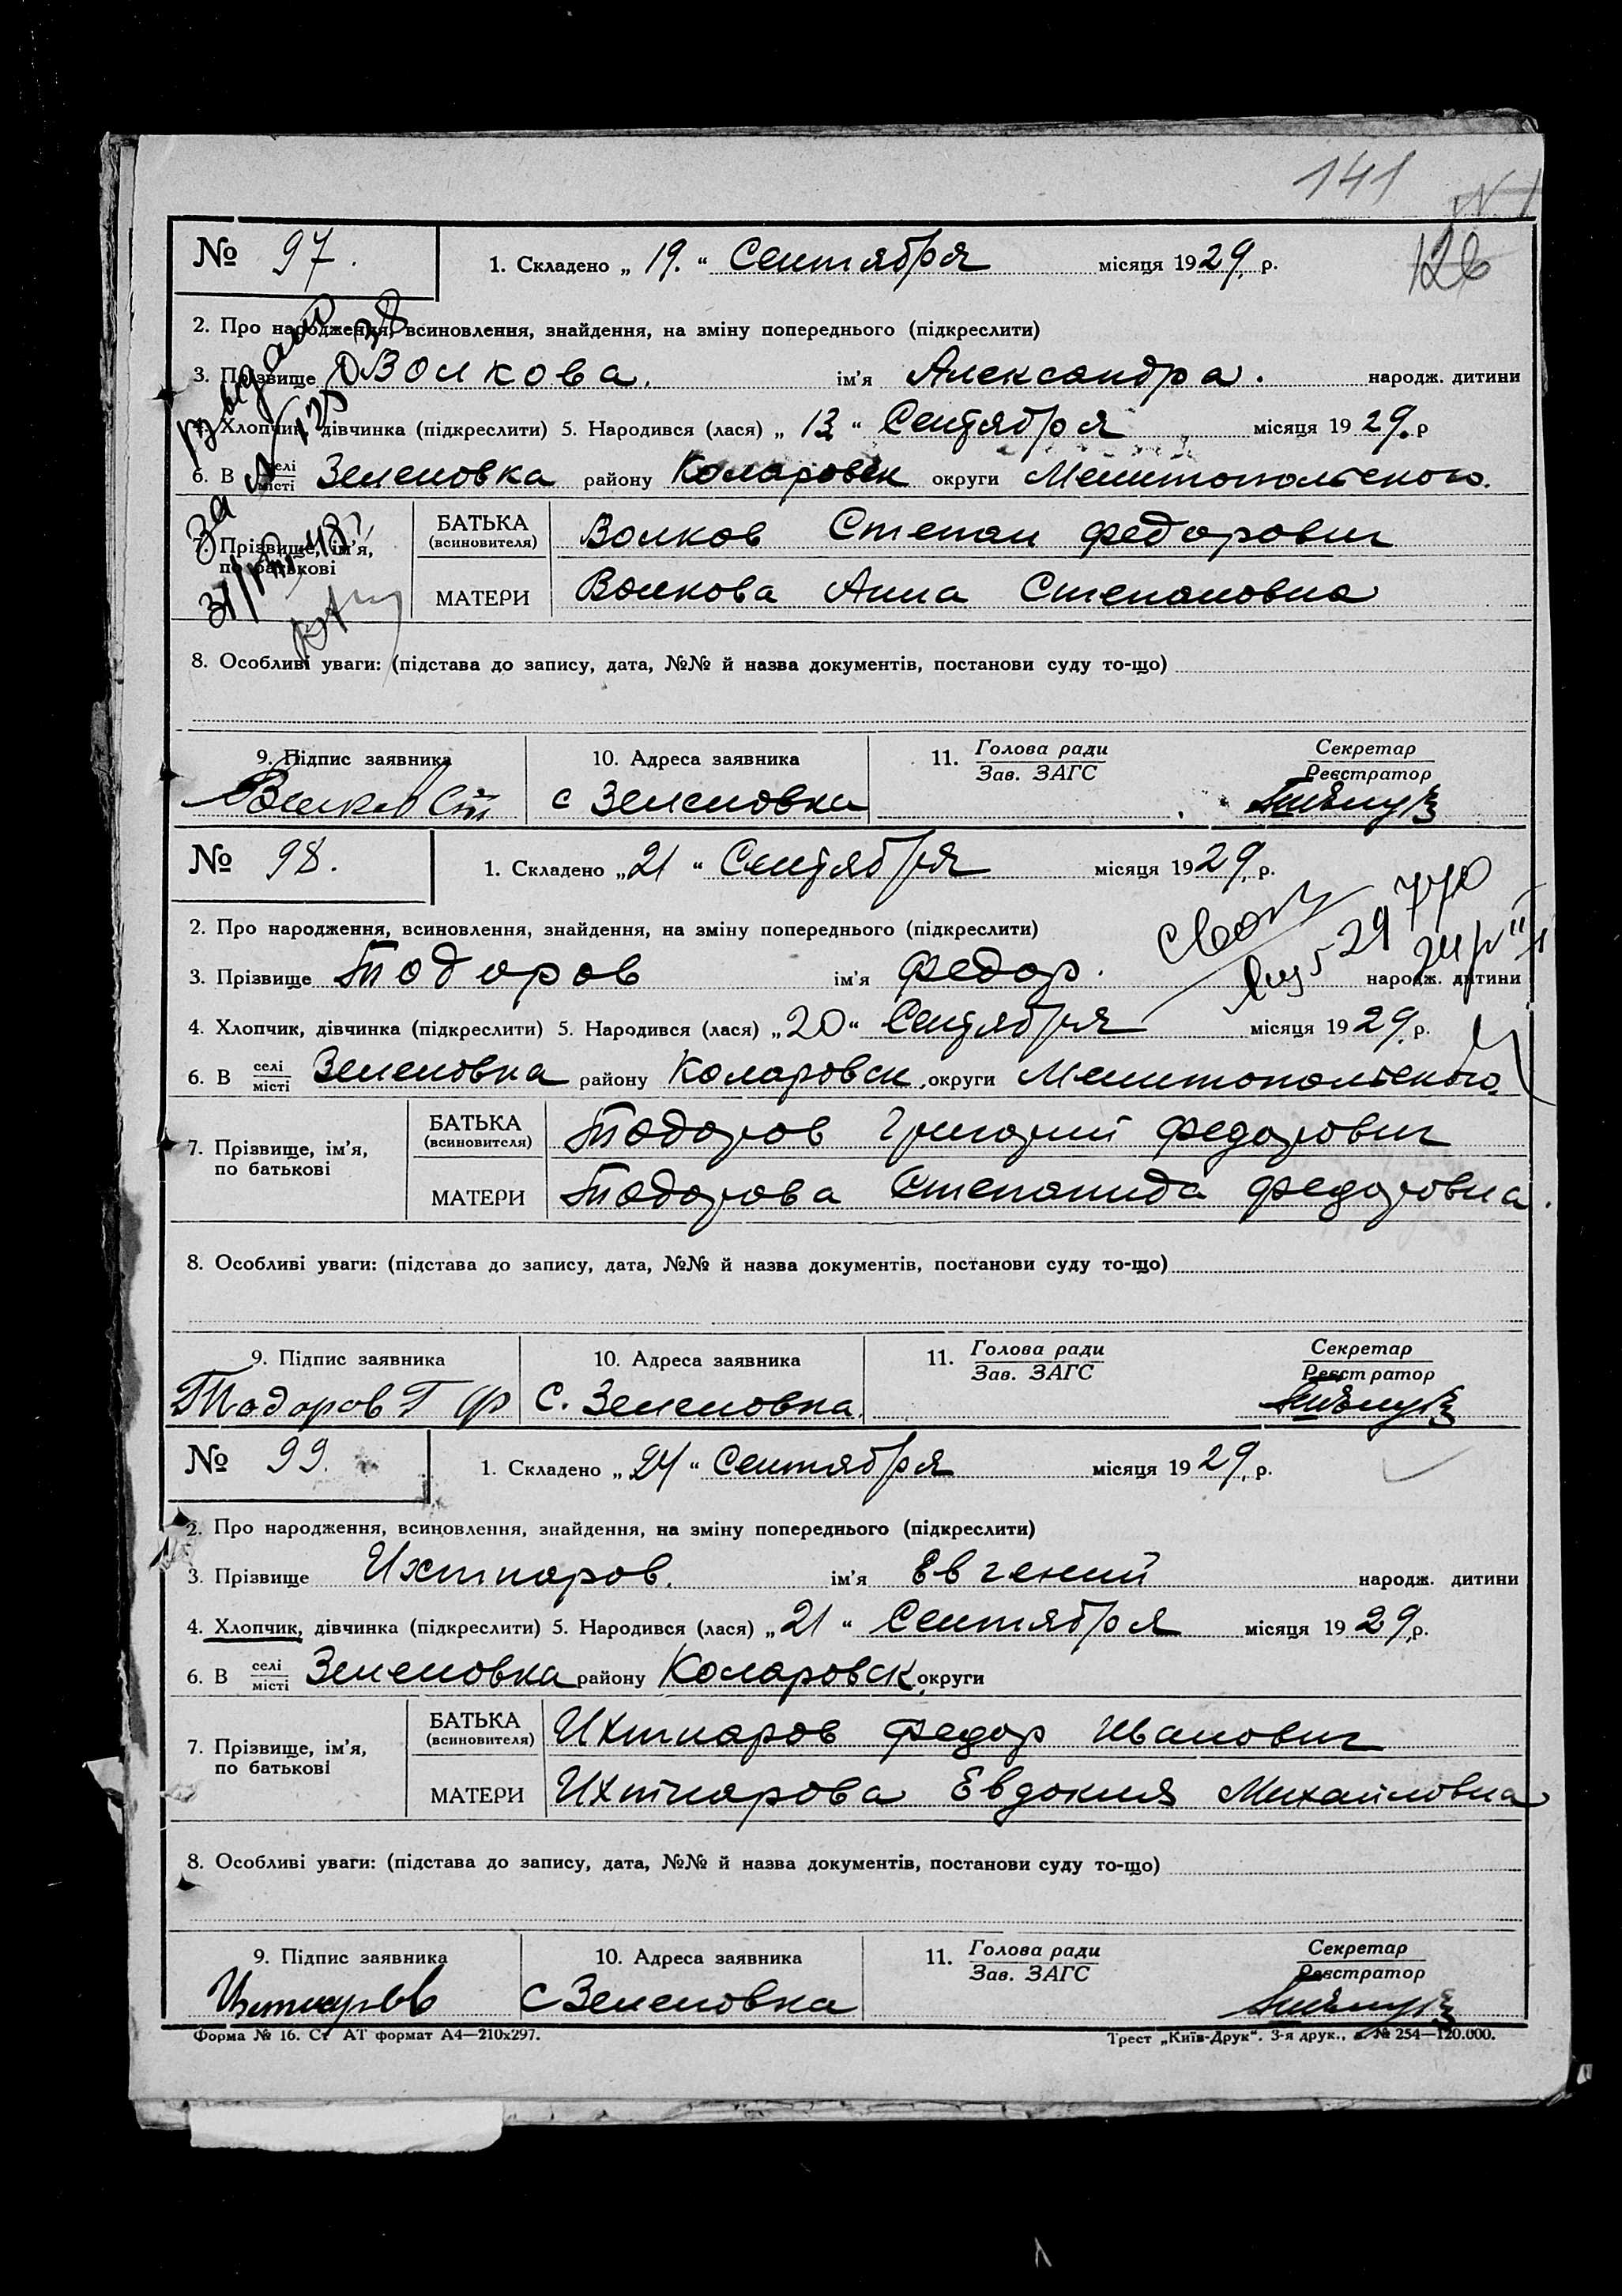 141
126
№ 97.
1. Складено „ 19. “ Сентября місяця 1929. р.
2. Про народження, всиновлення, знайдення, на зміну попереднього (підкреслити)
3. Прізвище Волкова. ім’я Александра. народж. дитини
4. Хлопчик, дівчинка (підкреслити) 5. Народився (лася) „ 13 “ Сентября місяця 1929. р
6. В селі/місті Зеленовка району Коларовск округи Мелитопольского.
7. Прізвище, ім’я, по батькові
БАТЬКА (всиновителя) Волков Степан Федорович
МАТЕРИ Волкова Анна Степановна
8. Особливі уваги: (підстава до запису, дата, №№ й назва документів, постанови суду то-що)
9. Підпис заявника 10. Адреса заявника 11. Голова ради/Зав. ЗАГС Секретар/Реєстратор
Волков Ст с Зеленовка
№ 98.
1. Складено „ 21 “ Сентября місяця 1929, р.
2. Про народження, всиновлення, знайдення, на зміну попереднього (підкреслити)
3. Прізвище Тодоров ім’я Федор. народж. дитини
4. Хлопчик, дівчинка (підкреслити) 5. Народився (лася) „ 20 “ Сентября місяця 1929, р.
6. В селі/місті Зеленовка району Коларовск округи Мелитопольского
7. Прізвище, ім’я, по батькові
БАТЬКА (всиновителя) Тодоров Григорий Федорович
МАТЕРИ Тодорова Степанида Федоровна.
8. Особливі уваги: (підстава до запису, дата, №№ й назва документів, постанови суду то-що)
9. Підпис заявника 10. Адреса заявника 11. Голова ради/Зав. ЗАГС Секретар/Реєстратор
Тодоров Г Ф С. Зеленовка
№ 99.
1. Складено „ 24 “ Сентября місяця 1929, р.
2. Про народження, всиновлення, знайдення, на зміну попереднього (підкреслити)
3. Прізвище Ихтиаров. ім’я Евгений народж. дитини
4. Хлопчик, дівчинка (підкреслити) 5. Народився (лася) „ 21 “ Сентября місяця 1929, р.
6. В селі/місті Зеленовка району Коларовск округи
7. Прізвище, ім’я, по батькові
БАТЬКА (всиновителя) Ихтиаров Федор Иванович
МАТЕРИ Ихтиарова Евдокия Михайловна
8. Особливі уваги: (підстава до запису, дата, №№ й назва документів, постанови суду то-що)
9. Підпис заявника 10. Адреса заявника 11. Голова ради/Зав. ЗАГС Секретар/Реєстратор
с Зеленовка
Форма № 16. Ст АТ формат А4—210х297. Трест „Київ-Друк“. 3-я друк., з. № 254—120.000.